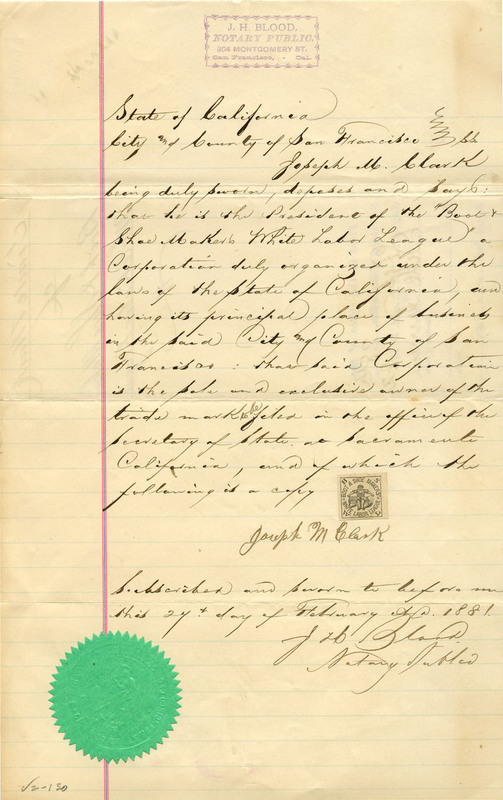 J. H. BLOOD,
NOTARY PUBLIC.
304 MONTGOMERY ST.
San Francisco, - Cal.
State of California
City and County of San Francisco ss
Joseph M. Clark
being duly sworn, deposes and says:
that he is the President of the "Boot &
Shoe Makers White Labor League" a
Corporation duly organized under the
laws of the State of California, and
having its principal place of business
in the said City and County of San
Francisco: that said Corporation
is the sole and exclusive owner of the
trade mark to be filed in the office of the
Secretary of State at Sacramento
California, and of which the
following is a copy
BOOT & SHOE MAKERS
WHITE LABOR LEAGUE
Joseph M Clark
Subscribed and sworn to before me
this 27th day of February A.D. 1881.
J H Blood
Notary Public